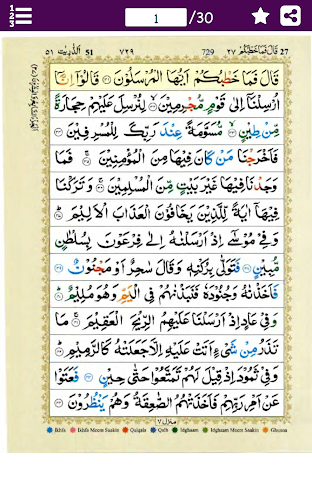 1 2 3
1 /30
٥١ الذّٰرِیٰت 51 ٧٢٩ 729 ٢٧ قَالَ فَمَا خَطْبُكُمْ 27
قَالَ فَمَا خَطْبُكُمْ اَیُّهَا الْمُرْسَلُوْنَ ۝٣١ قَالُوْۤا اِنَّاۤ
اُرْسِلْنَاۤ اِلٰى قَوْمٍ مُّجْرِمِیْنَ ۝٣٢ لِنُرْسِلَ عَلَیْهِمْ حِجَارَةً
مِّنْ طِیْنٍ ۝٣٣ مُّسَوَّمَةً عِنْدَ رَبِّكَ لِلْمُسْرِفِیْنَ ۝٣٤
فَاَخْرَجْنَا مَنْ كَانَ فِیْهَا مِنَ الْمُؤْمِنِیْنَ ۝٣٥ فَمَا
وَجَدْنَا فِیْهَا غَیْرَ بَیْتٍ مِّنَ الْمُسْلِمِیْنَ ۝٣٦ وَ تَرَكْنَا
فِیْهَاۤ اٰیَةً لِّلَّذِیْنَ یَخَافُوْنَ الْعَذَابَ الْاَلِیْمَ ۝٣٧
وَ فِیْ مُوْسٰۤى اِذْ اَرْسَلْنٰهُ اِلٰى فِرْعَوْنَ بِسُلْطٰنٍ
مُّبِیْنٍ ۝٣٨ فَتَوَلّٰى بِرُكْنِهٖ وَ قَالَ سٰحِرٌ اَوْ مَجْنُوْنٌ ۝٣٩
فَاَخَذْنٰهُ وَ جُنُوْدَهٗ فَنَبَذْنٰهُمْ فِی الْیَمِّ وَ هُوَ مُلِیْمٌ ۝٤٠
وَ فِیْ عَادٍ اِذْ اَرْسَلْنَا عَلَیْهِمُ الرِّیْحَ الْعَقِیْمَ ۝٤١ مَا
تَذَرُ مِنْ شَیْءٍ اَتَتْ عَلَیْهِ اِلَّا جَعَلَتْهُ كَالرَّمِیْمِ ۝٤٢
وَ فِیْ ثَمُوْدَ اِذْ قِیْلَ لَهُمْ تَمَتَّعُوْا حَتّٰى حِیْنٍ ۝٤٣ فَعَتَوْا
عَنْ اَمْرِ رَبِّهِمْ فَاَخَذَتْهُمُ الصّٰعِقَةُ وَ هُمْ یَنْظُرُوْنَ ۝٤٤
منزل ٧
Ikhfa Ikhfa Meem Saakin Qalqala Qalb Idghaam Idghaam Meem Saakin Ghunna